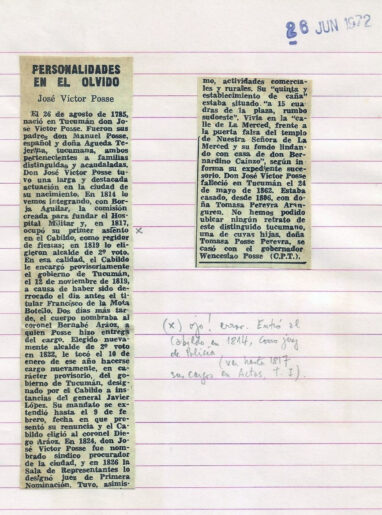 26 JUN 1972
PERSONALIDADES
EN EL OLVIDO
José Víctor Posse
El 26 de agosto de 1785,
nació en Tucumán don Jo-
sé Víctor Posse. Fueron sus
padres don Manuel Posse,
español y doña Agueda Te-
jerina, tucumana, ambos
pertenecientes a familias
distinguidas y acaudaladas.
Don José Víctor Posse tu-
vo una larga y destacada
actuación en la ciudad de
su nacimiento. En 1814 lo
vemos integrando, con Bor-
ja Aguilar, la comisión
creada para fundar el Hos-
pital Militar y, en 1817,
ocupó su primer asiento
en el Cabildo, como regidor
de fiestas; en 1819 lo eli-
gieron alcalde de 2º voto.
En esa calidad, el Cabildo
le encargó provisoriamente
el gobierno de Tucumán,
el 12 de noviembre de 1819,
a causa de haber sido de-
rrocado el día antes el ti-
tular Francisco de la Mota
Botello. Dos días más tar-
de, el cuerpo nombraba al
coronel Bernabé Aráoz, a
quien Posse hizo entrega
del cargo. Elegido nueva-
mente alcalde de 2º voto
en 1822, le tocó el 10 de
enero de ese año hacerse
cargo nuevamente, en ca-
rácter provisorio, del go-
bierno de Tucumán, desig-
nado por el Cabildo a ins-
tancias del general Javier
López. Su mandato se ex-
tendió hasta el 9 de fe-
brero, fecha en que pre-
sentó su renuncia y el Ca-
bildo eligió al coronel Die-
go Aráoz. En 1824, don Jo-
sé Víctor Posse fue nom-
brado síndico procurador
de la ciudad, y en 1826 la
Sala de Representantes lo
designó juez de Primera
Nominación. Tuvo, asimis-
mo, actividades comercia-
les y rurales. Su "quinta y
establecimiento de caña"
estaba situado "a 15 cua-
dras de la plaza, rumbo
sudoeste". Vivía en la "ca-
lle de La Merced, frente a
la puerta falsa del templo
de Nuestra Señora de La
Merced y su fondo lindan-
do con casa de don Ber-
nardino Cainzo", según in-
forma su expediente suce-
sorio. Don José Víctor Posse
falleció en Tucumán el 24
de mayo de 1862. Estaba
casado, desde 1806, con do-
ña Tomasa Pereyra Aran-
guren. No hemos podido
ubicar ningún retrato de
este distinguido tucumano,
una de cuyas hijas, doña
Tomasa Posse Pereyra, se
casó con el gobernador
Wenceslao Posse (C.P.T.).
x
(x) ojo! error. Entró al
Cabildo en 1814, como juez
de Policía
(ver hasta 1817
sus cargos en Actas, T. I).